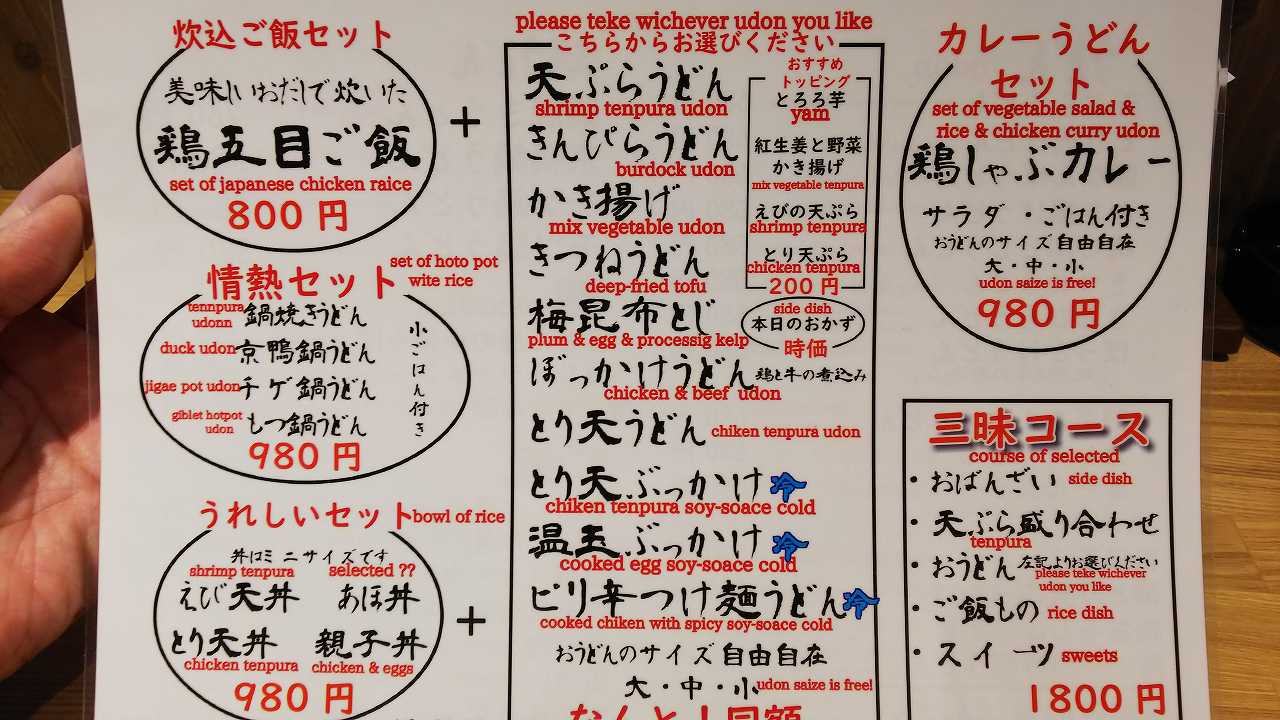 炊込ご飯セット
美味しいおだしで炊いた
鶏五目ご飯
set of japanese chicken raice
800 円
+
情熱セット
set of hoto pot
wite rice
tennpura
udonn
鍋焼きうどん
duck udon
京鴨鍋うどん
jigae pot udon
チゲ鍋うどん
giblet hotpot
udon
もつ鍋うどん
小ごはん付き
980 円
うれしいセット
bowl of rice
丼はミニサイズです
shrimp tenpura
selected ??
えび天丼
あほ丼
とり天丼
親子丼
chicken tenpura
chicken & eggs
980 円
+
please teke wichever udon you like
こちらからお選びください
天ぷらうどん
shrimp tenpura udon
きんぴらうどん
burdock udon
かき揚げ
mix vegetable udon
きつねうどん
deep-fried tofu
梅昆布とじ
plum & egg & processig kelp
ぼっかけうどん
鶏と牛の煮込み
chicken & beef udon
とり天うどん
chiken tenpura udon
とり天ぶっかけ 冷
chiken tenpura soy-soace cold
温玉ぶっかけ 冷
cooked egg soy-soace cold
ピリ辛つけ麺うどん 冷
cooked chiken with spicy soy-soace cold
おうどんのサイズ自由自在
大・中・小
udon saize is free!
なんと!同額
おすすめ
トッピング
とろろ芋
yam
紅生姜と野菜
かき揚げ
mix vegetable tenpura
えびの天ぷら
shrimp tenpura
とり天ぷら
chicken tenpura
200 円
side dish
本日のおかず
時価
カレーうどん
セット
set of vegetable salad &
rice & chicken curry udon
鶏しゃぶカレー
サラダ・ごはん付き
おうどんのサイズ自由自在
大・中・小
udon saize is free!
980 円
三昧コース
course of selected
・おばんざい side dish
・天ぷら盛り合わせ
tenpura
・おうどん 左記よりお選びください
please teke wichever
udon you like
・ご飯もの rice dish
・スイーツ sweets
1800 円